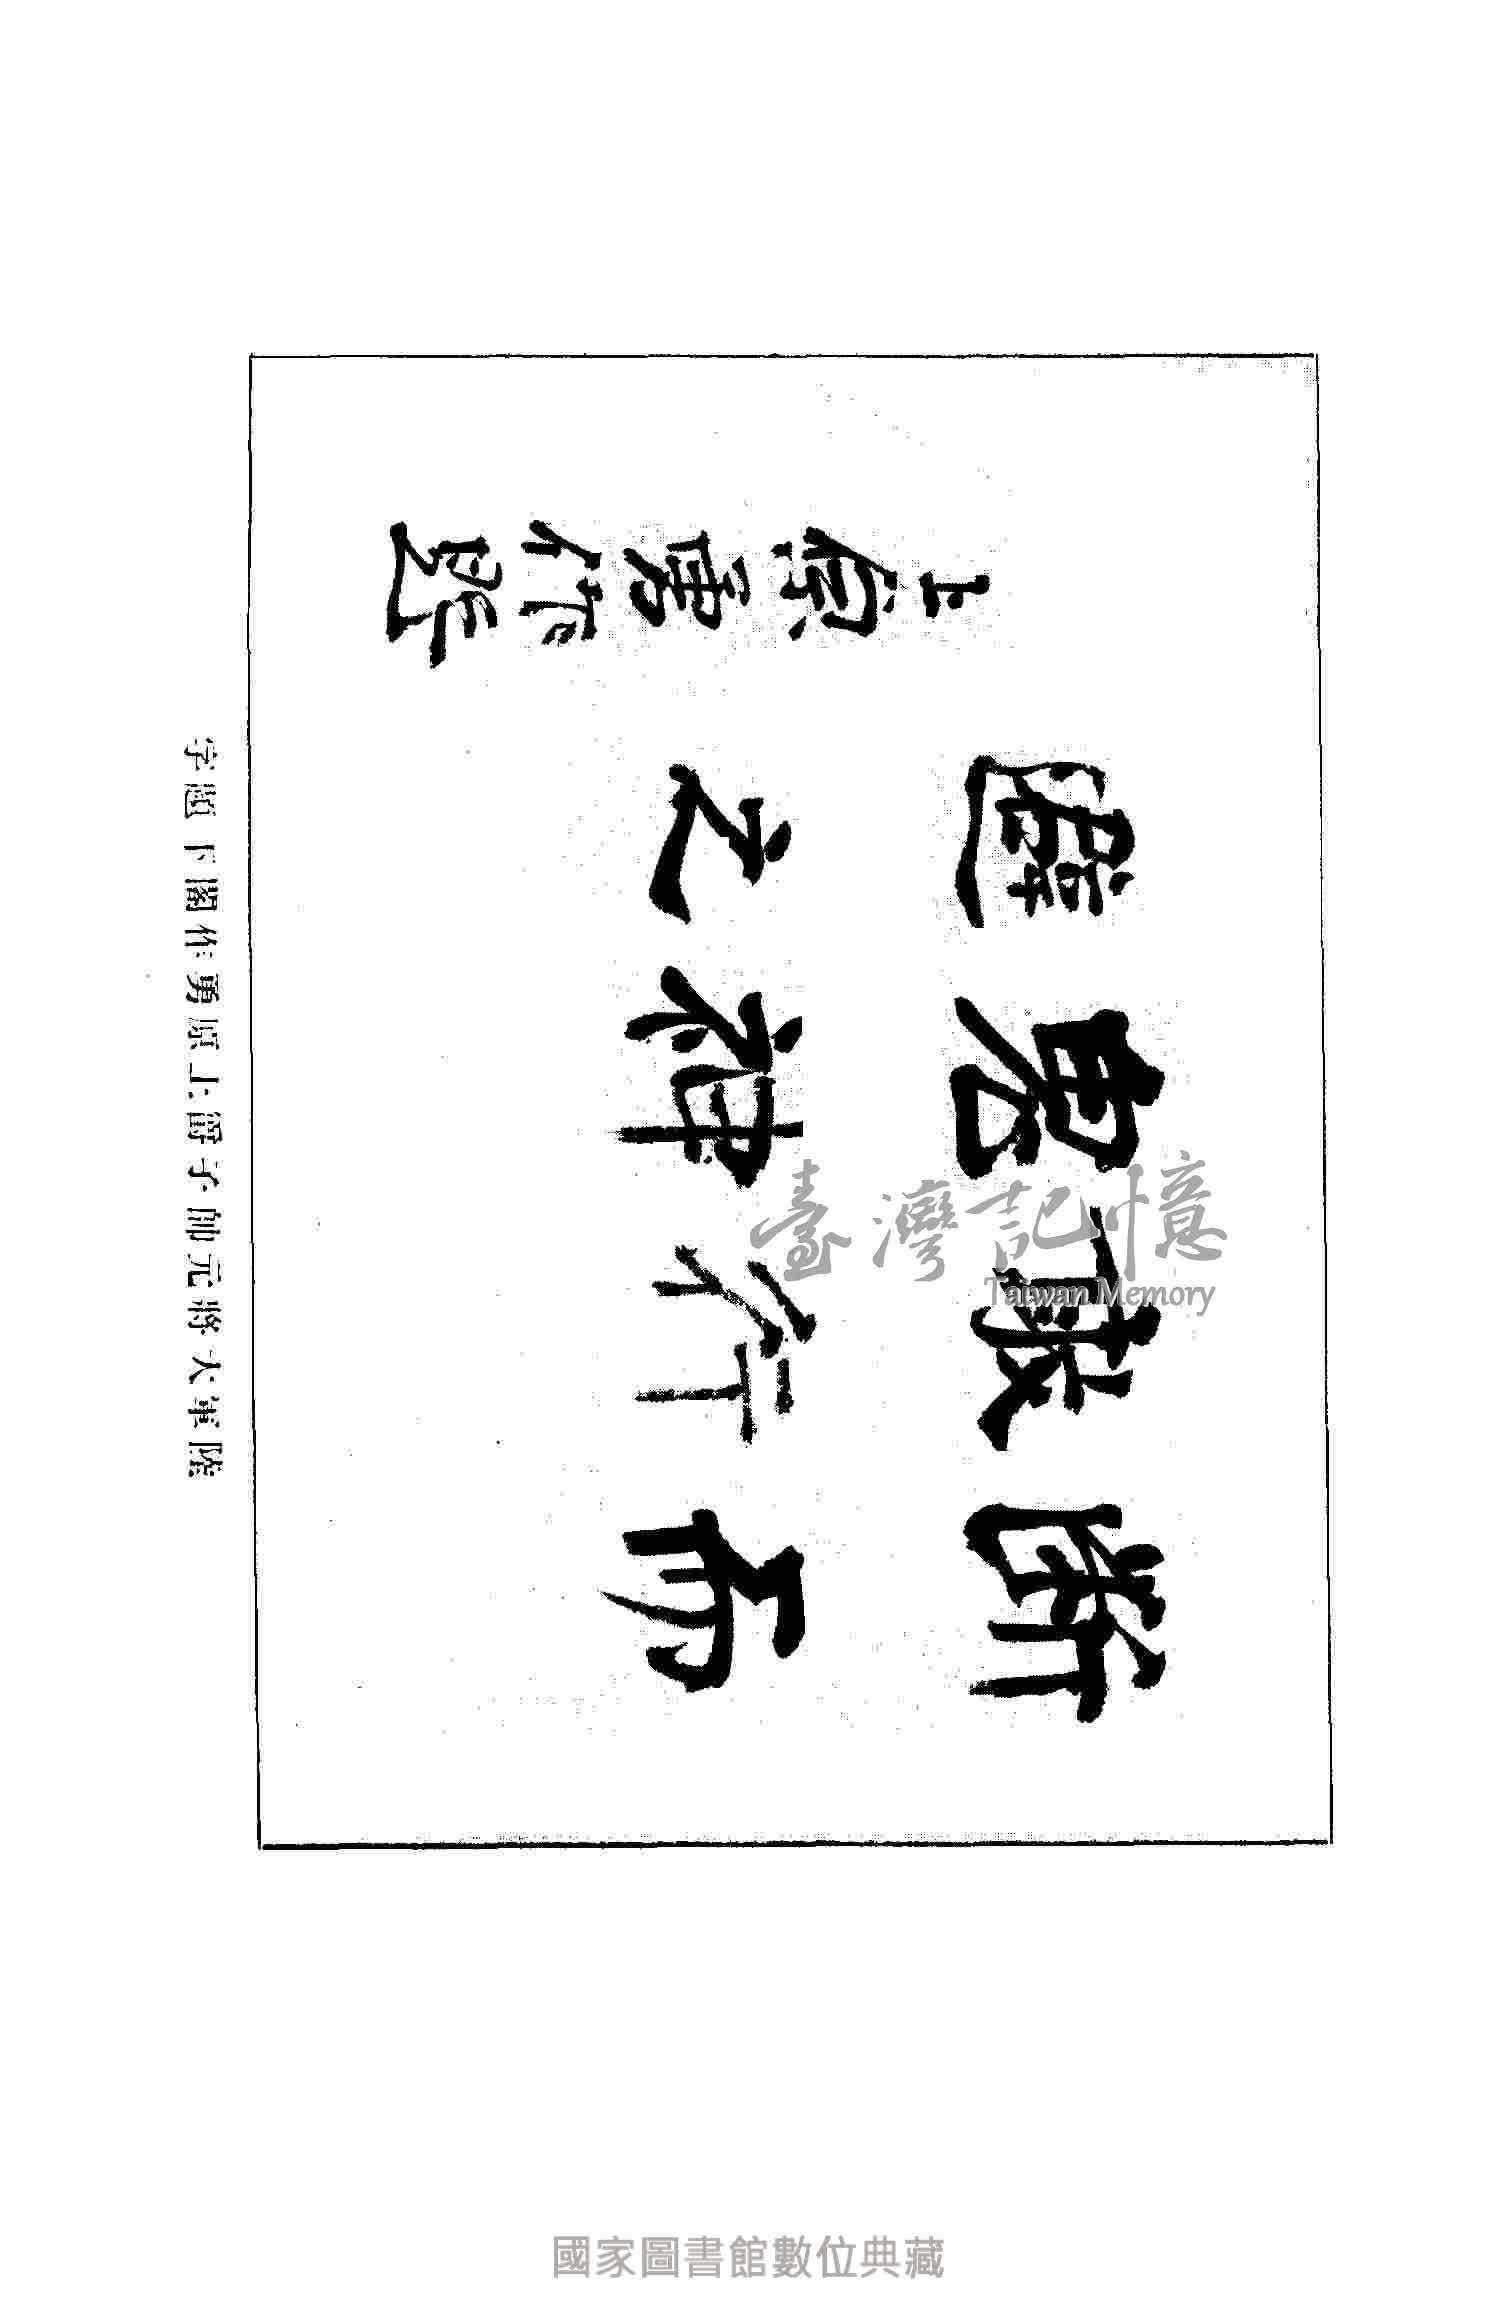 斷而
敢行
鬼神
避之
上原勇作題
陸軍大將元帥子爵上原勇作閣下題字
臺灣記憶
Taiwan Memory
國家圖書館數位典藏